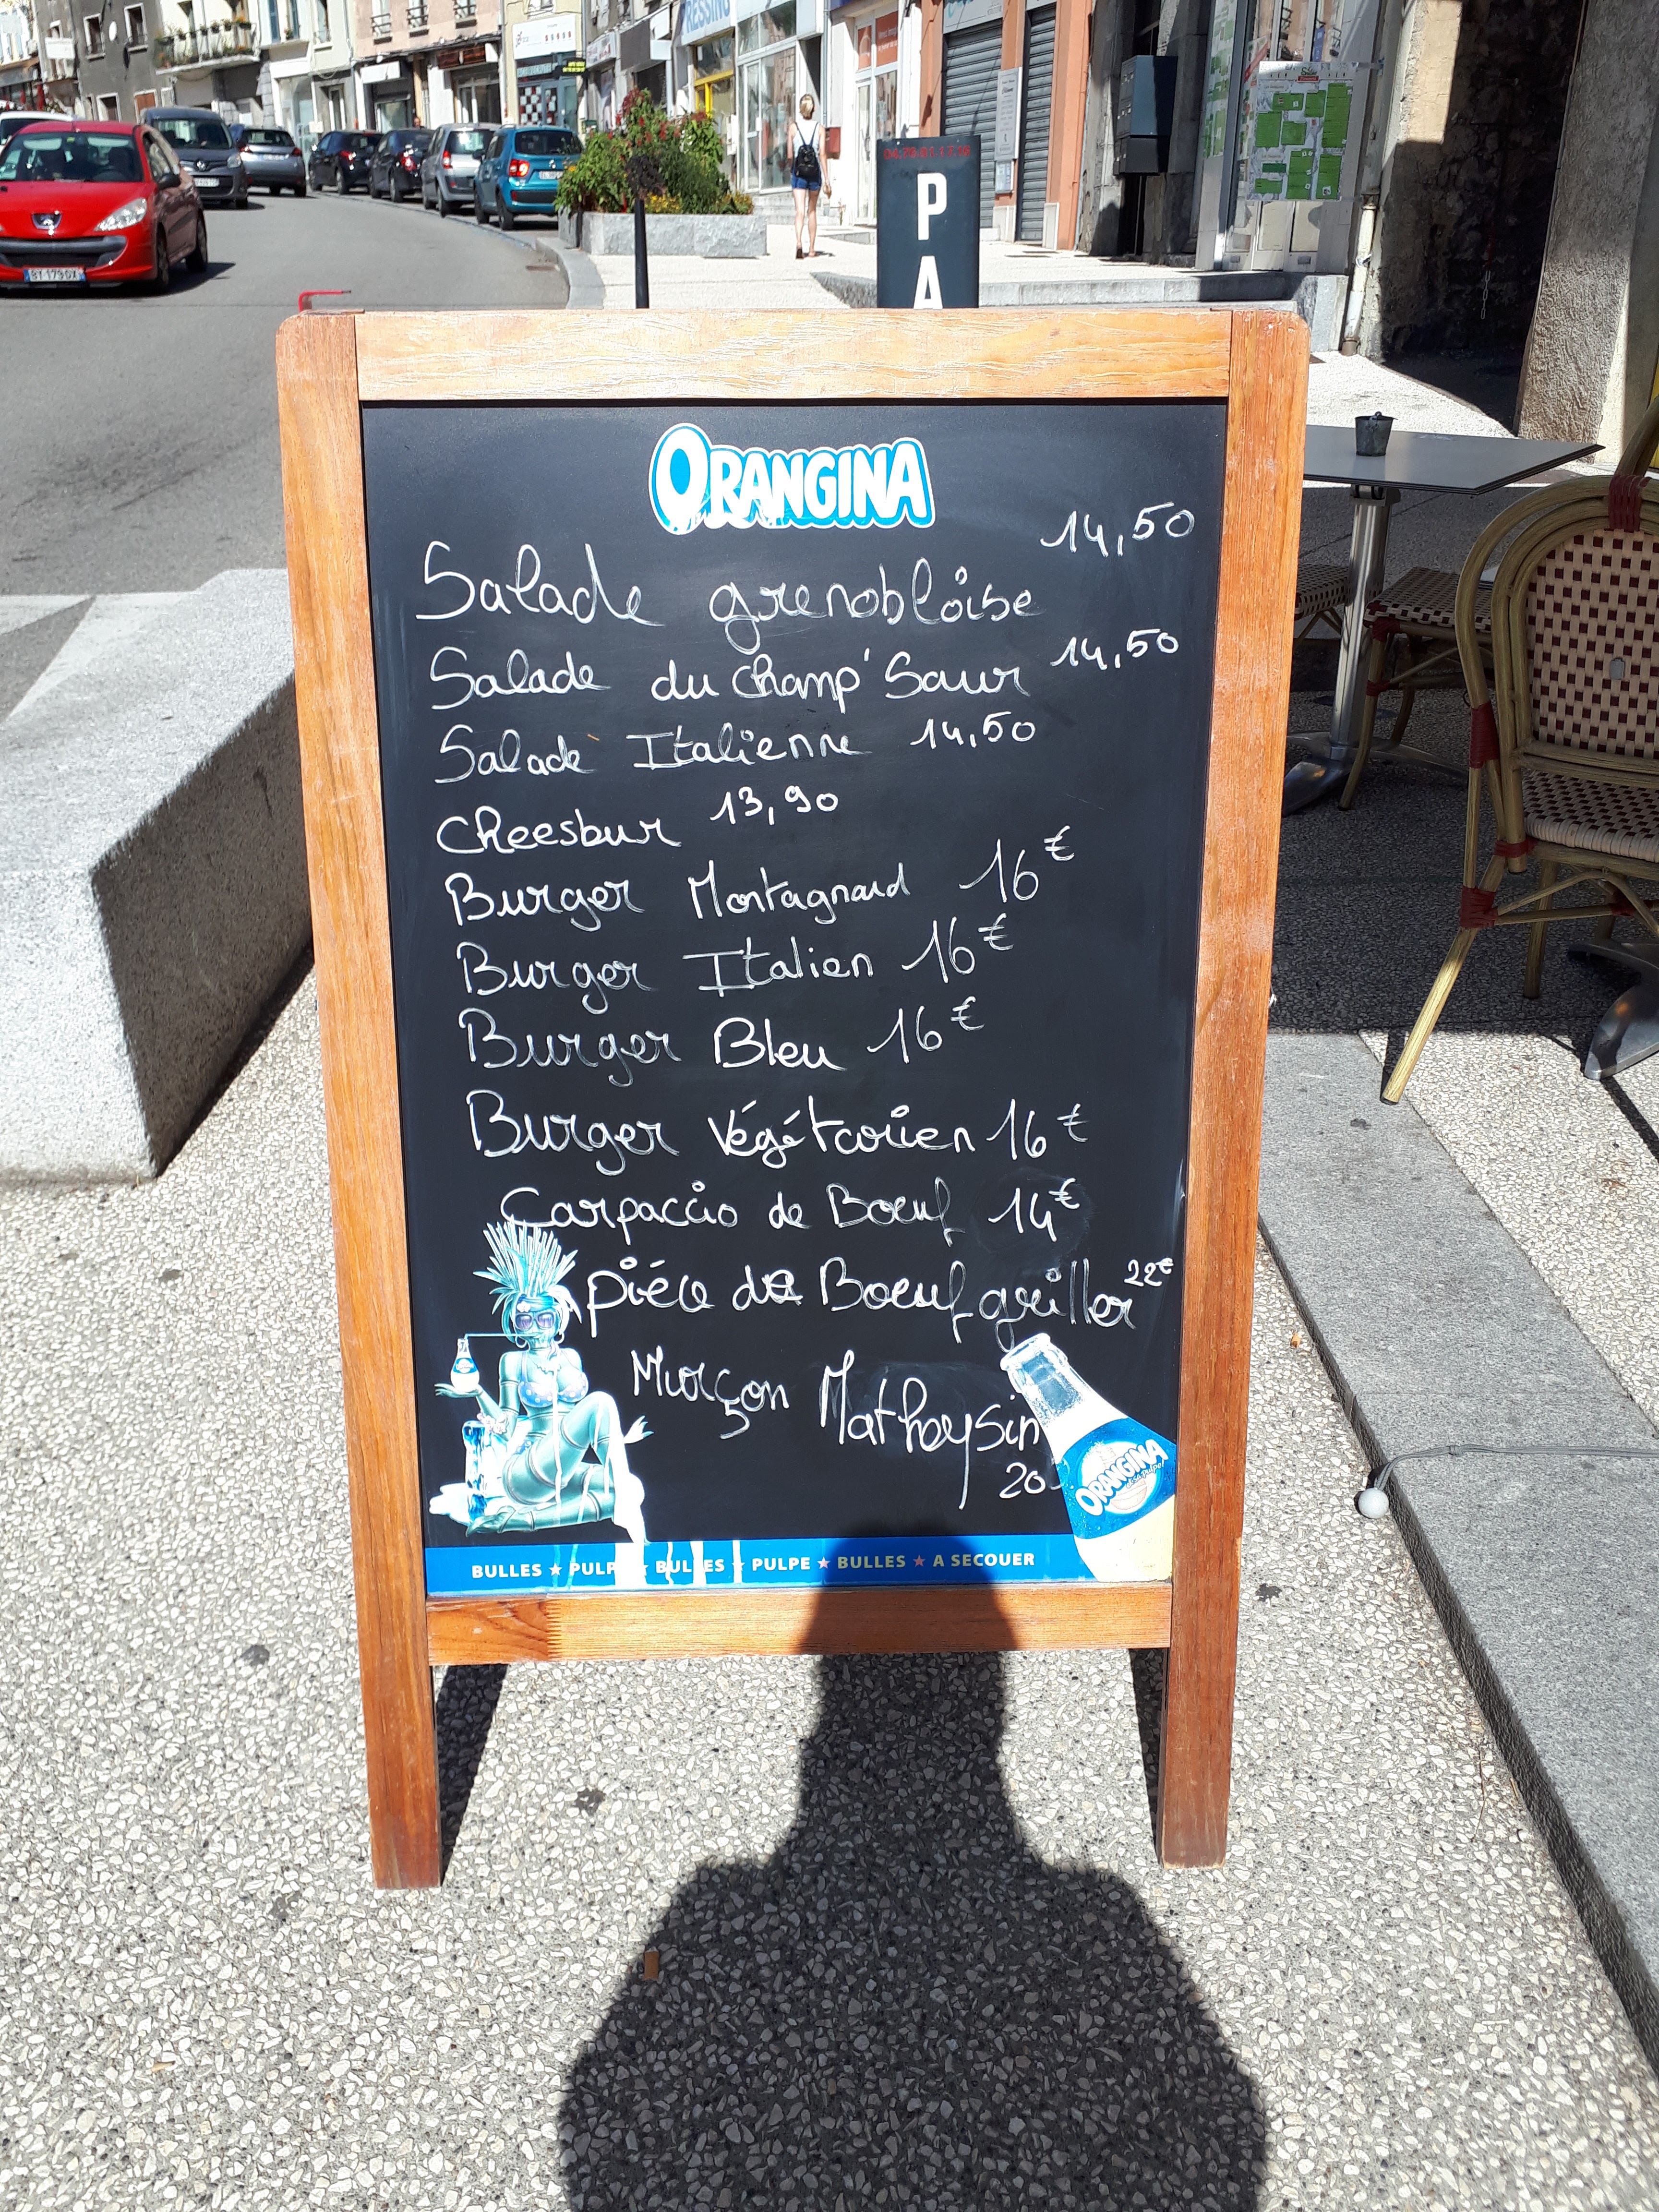 PRESSING
04.76.81.17.36
P
A
BY 179 GX
ORANGINA
14,50
Salade grenobloise
Salade du Champ'Saur 14,50
Salade Italienne 14,50
Cheesbur 13,90
Burger Montagnard 16€
Burger Italien 16€
Burger Bleu 16€
Burger Végétarien 16€
Carpaccio de Boeuf 14€
piéce de Boeuf griller 22€
Murçon Matheysin
20
ORANGINA
BULLES ★ PULPE ★ BULLES ★ PULPE ★ BULLES ★ A SECOUER